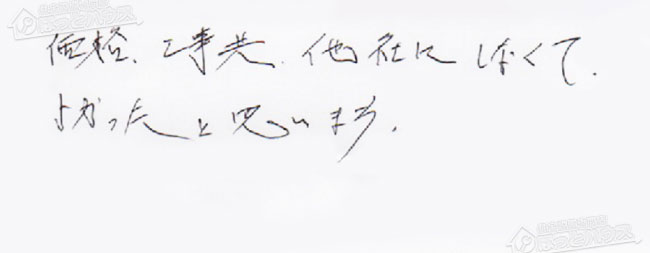 価格、工事共、他社にしなくて、
よかったと思います。